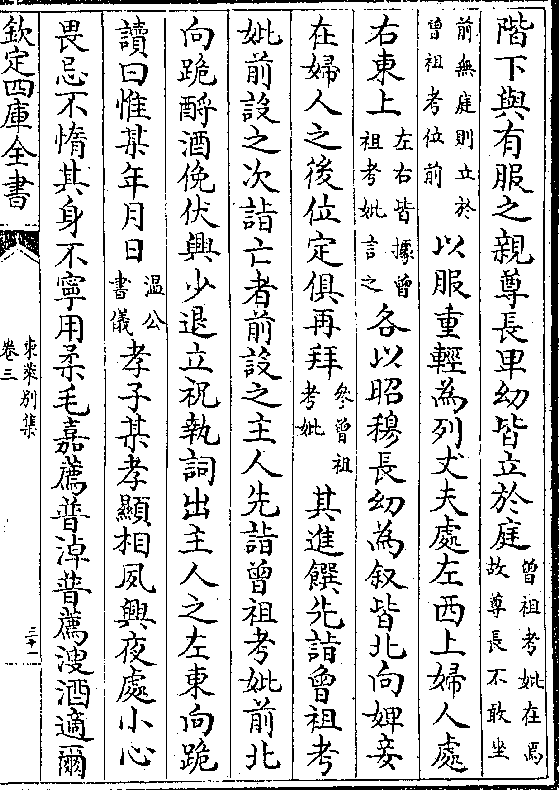 階下與有服之親尊長卑幼皆立於庭曾祖考妣在焉故尊長不敢坐
前無庭則立於曾祖考位前以服重輕為列丈夫處左西上婦人處
右東上左右皆據曾祖考妣言之各以昭穆長幼為叙皆北向婢妾
在婦人之後位定俱再拜參曾祖考妣其進饌先詣曾祖考
妣前設之次詣亡者前設之主人先詣曾祖考妣前北
向跪酹酒俛伏興少退立祝執詞出主人之左東向跪
讀曰惟某年月日溫公書儀孝子某孝顯相夙興夜處小心
畏忌不惰其身不寧用柔毛嘉薦普淖普薦溲酒適爾
欽定四庫全書
東萊別集
卷三
三十一